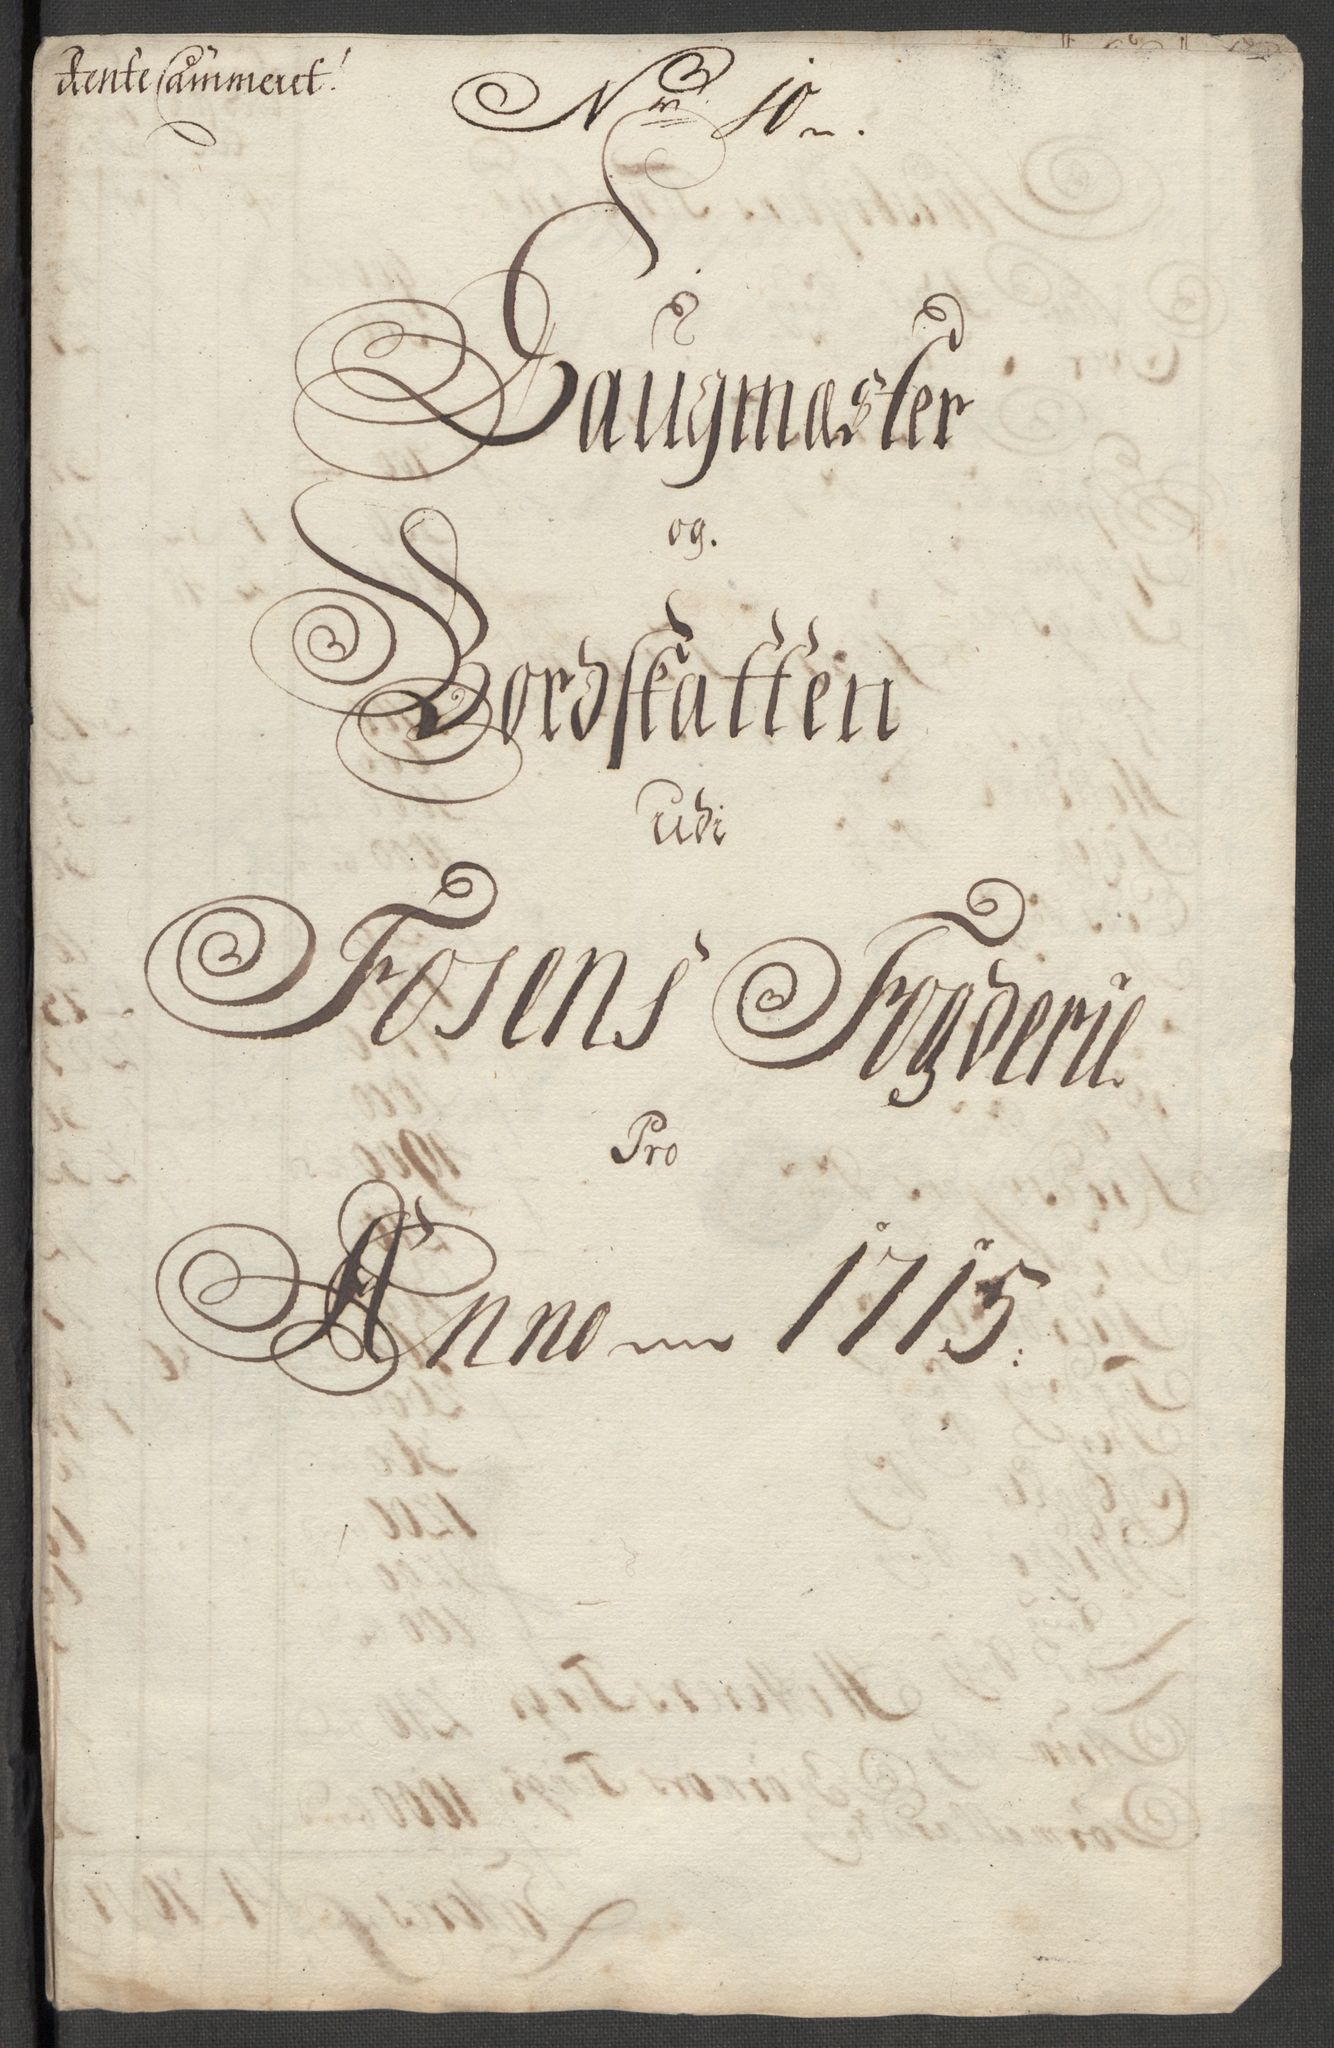 Rente Cammeret.
No. 10.
Saugmæster
og.
Bordskatten
Udi
Fosens Fogderie
Pro
Anno 1715.